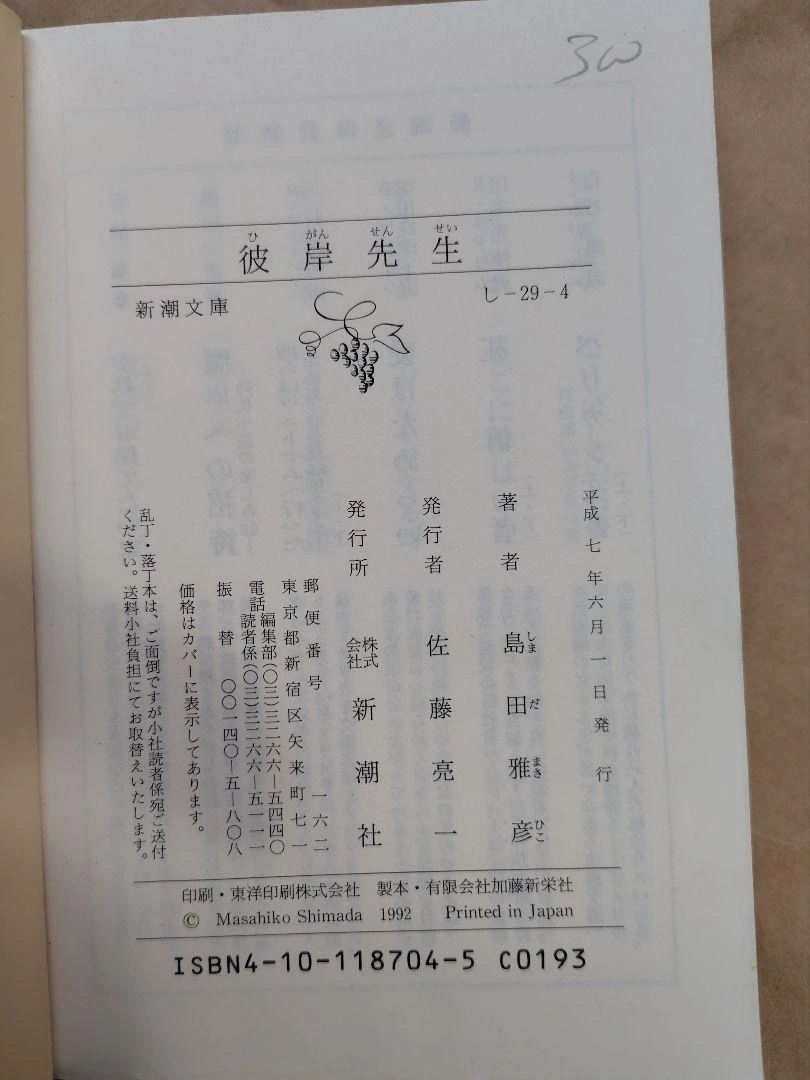 彼岸先生
ひ がん せん せい
新潮文庫
し-29-4
平成七年六月一日発行
著者 島田雅彦
しま だ まさ ひこ
発行者 佐藤亮一
発行所 株式会社 新潮社
郵便番号 一六二
東京都新宿区矢来町七一
電話 編集部(〇三)三二六六―五四四〇
読者係(〇三)三二六六―五一一一
振替 〇〇一四〇―五―八〇八
価格はカバーに表示してあります。
乱丁・落丁本は、ご面倒ですが小社読者係宛ご送付
ください。送料小社負担にてお取替えいたします。
印刷・東洋印刷株式会社 製本・有限会社加藤新栄社
© Masahiko Shimada 1992 Printed in Japan
ISBN4-10-118704-5 C0193